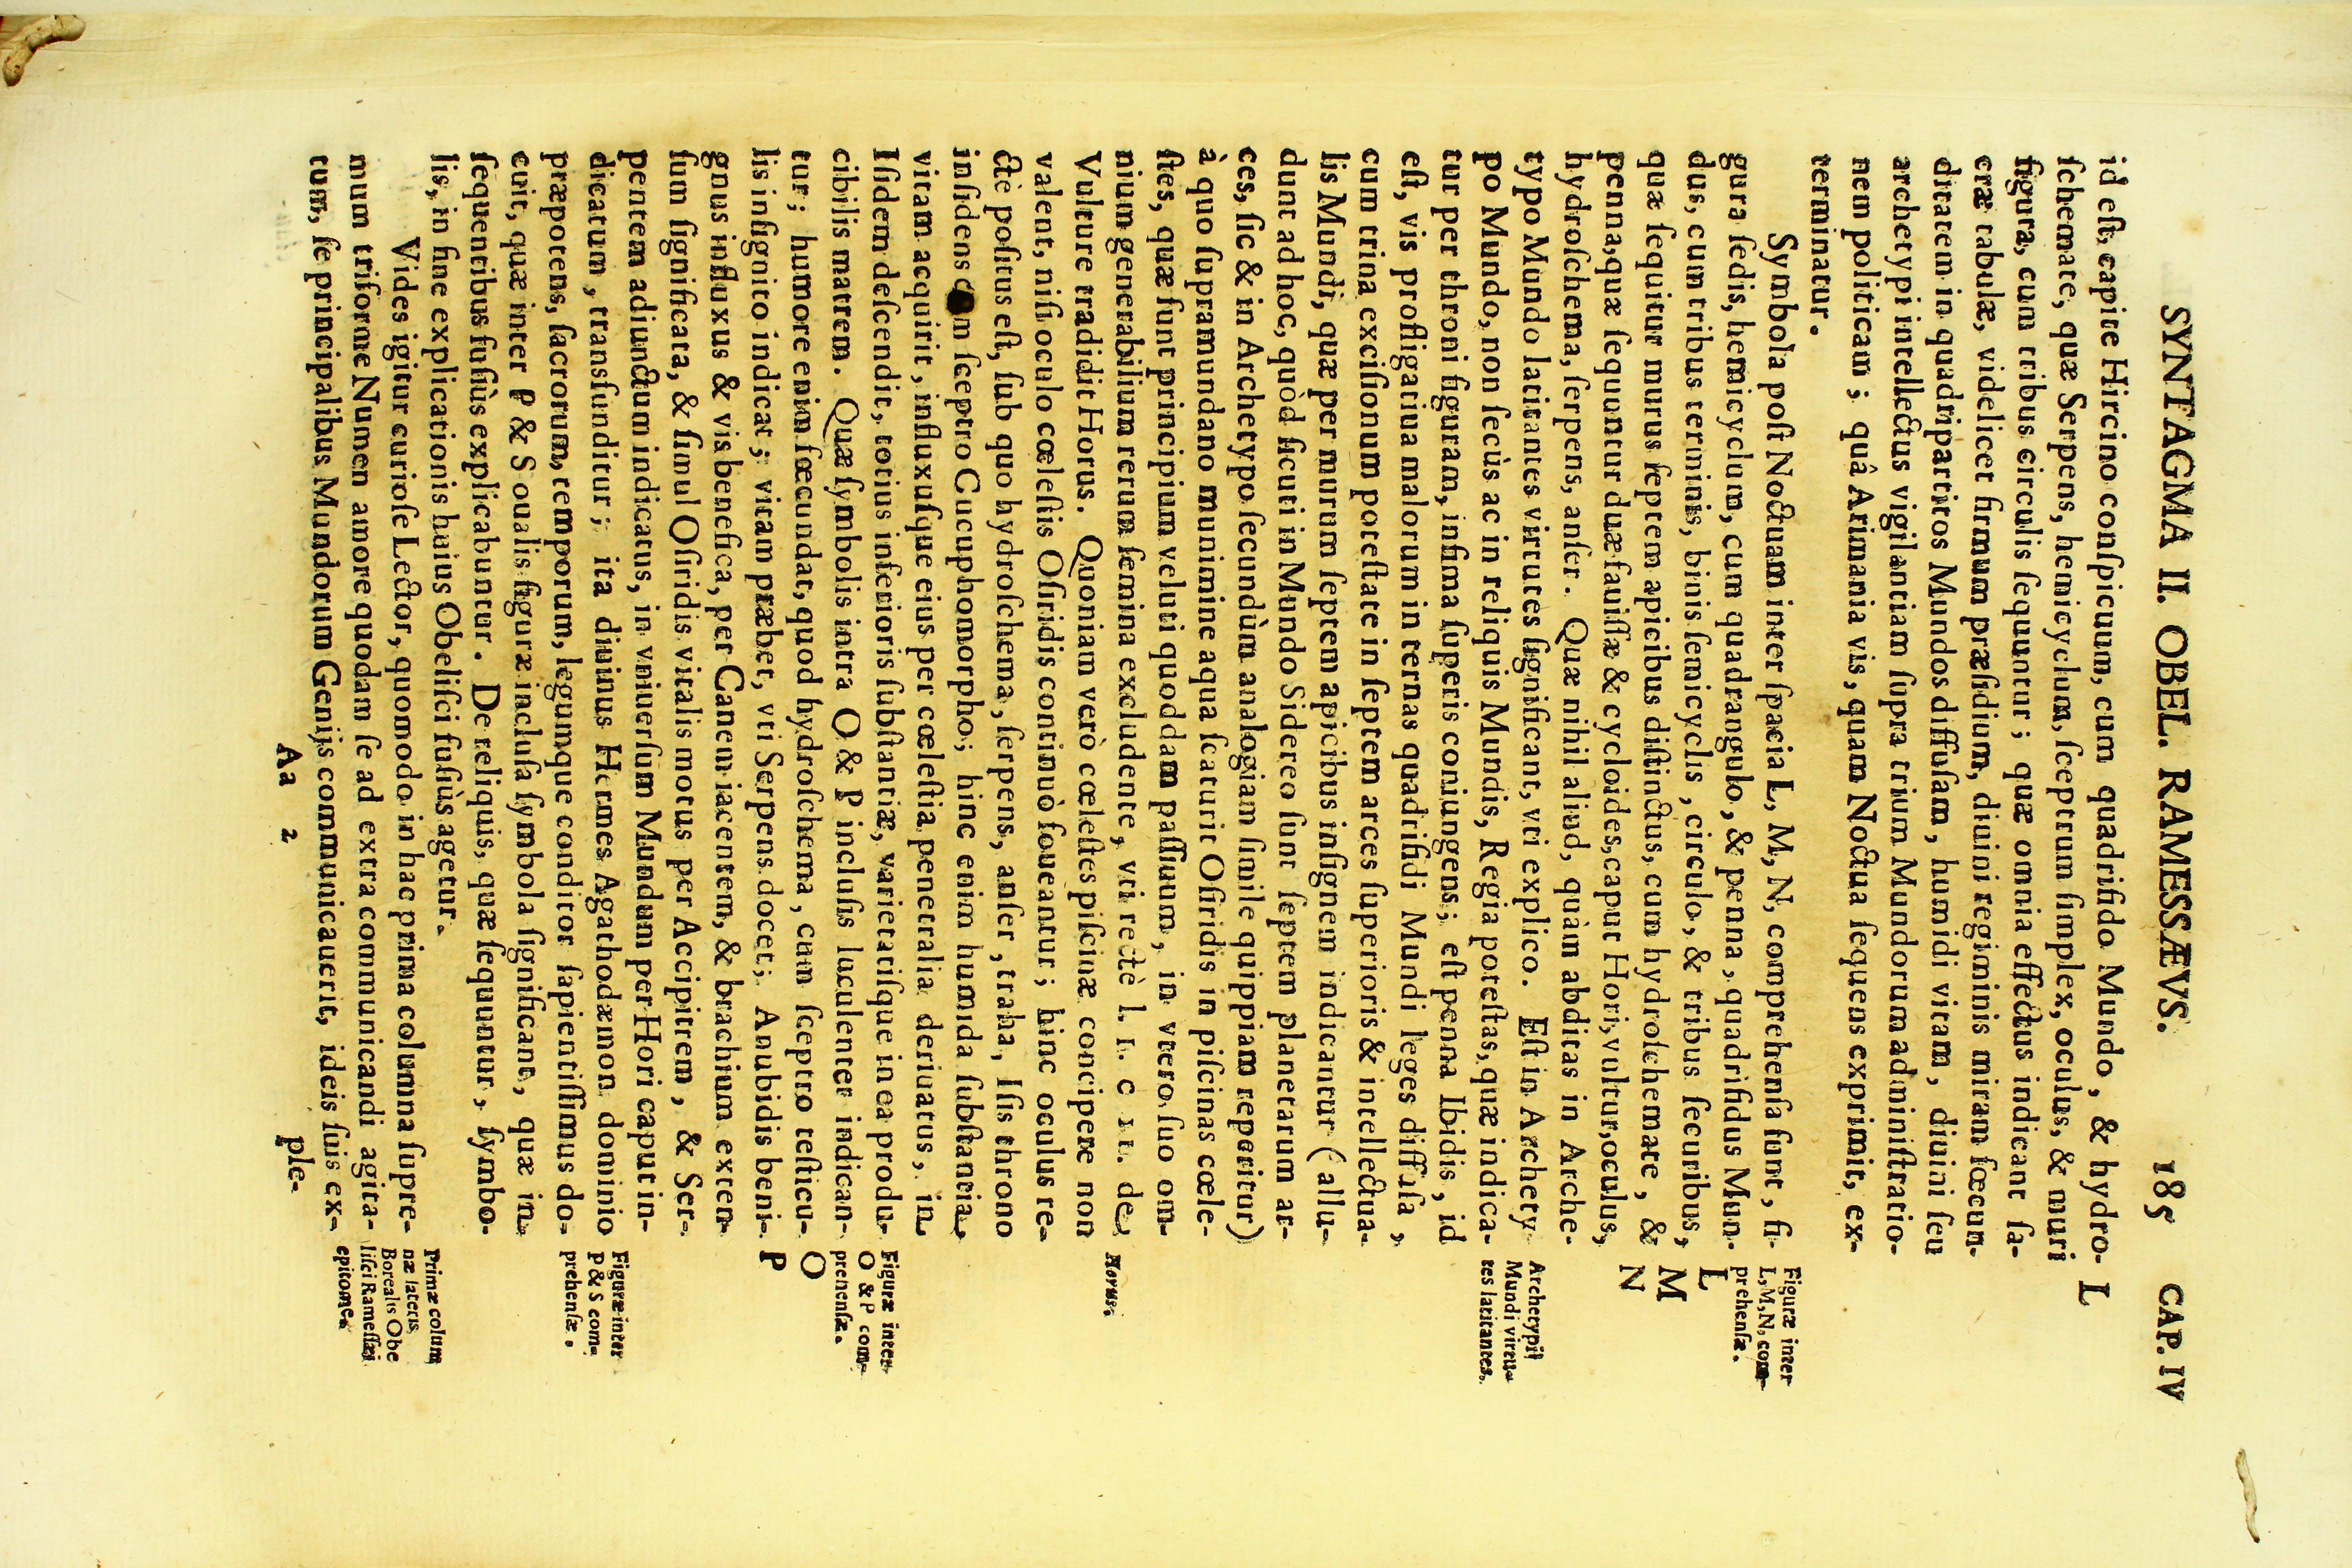 SYNTAGMA II. OBEL. RAMESSÆVS. 185 CAP. IV
id eſt, capite Hircino conſpicuum, cum quadrifido Mundo, & hydro- L
ſchemate, quæ Serpens, hemicyclum, ſceptrum ſimplex, oculus, & muri
figura, cum tribus circulis ſequuntur; quæ omnia effectus indicant ſa-
cræ tabulæ, videlicet firmum præſidium, diuini regiminis miram fœcun-
ditatem in quadripartitos Mundos diffuſam, humidi vitam, diuini ſeu
archetypi intellectus vigilantiam ſupra trium Mundorum adminiſtratio-
nem politicam; quâ Arimania vis, quam Noctua ſequens exprimit, ex-
terminatur.
Symbola poſt Noctuam inter ſpacia L, M, N, comprehenſa ſunt, fi-
gura ſedis, hemicyclum, cum quadrangulo, & penna, quadrifidus Mun-
dus, cum tribus terminis, binis ſemicyclis, circulo, & tribus ſecuribus,
quæ ſequitur murus ſeptem apicibus diſtinctus, cum hydroſchemate, &
penna, quæ ſequuntur duæ fauiſſæ & cycloides, caput Hori, vultur, oculus,
hydroſchema, ſerpens, anſer. Quæ nihil aliud, quàm abditas in Arche-
typo Mundo latitantes virtutes ſignificant, vti explico. Eſt in Archety-
po Mundo, non ſecùs ac in reliquis Mundis, Regia poteſtas, quæ indica-
tur per throni figuram, infima ſuperis coniungens; eſt penna Ibidis, id
eſt, vis profligatiua malorum in ternas quadrifidi Mundi leges diffuſa,
cum trina exciſionum poteſtate in ſeptem arces ſuperioris & intellectua-
lis Mundi, quæ per murum ſeptem apicibus inſignem indicantur (allu-
dunt ad hoc, quòd ſicuti in Mundo Sidereo ſunt ſeptem planetarum ar-
ces, ſic & in Archetypo ſecundùm analogiam ſimile quippiam reperitur)
à quo ſupramundano munimine aqua ſcaturit Oſiridis in piſcinas cœle-
ſtes, quæ ſunt principium veluti quoddam paſſiuum, in vtero ſuo om-
nium generabilium rerum ſemina excludente, vti rectè l. 1. c 11. de
Vulture tradidit Horus. Quoniam verò cœleſtes piſcinæ concipere non
valent, niſi oculo cœleſtis Oſiridis continuò foueantur; hinc oculus re-
ctè poſitus eſt, ſub quo hydroſchema, ſerpens, anſer, traha, Iſis throno
inſidens m ſceptro Cucuphomorpho; hinc enim humida ſubſtantia,
vitam acquirit, influxuſque eius per cœleſtia penetralia deriuatus, in
Iſidem deſcendit, totius inferioris ſubſtantiæ, varietatiſque in ea produ-
cibilis matrem. Quæ ſymbolis intra O & P incluſis luculenter indican-
tur; humore enim fœcundat, quod hydroſchema, cum ſceptro teſticu-
lis inſignito indicat; vitam præbet, vti Serpens docet; Anubidis beni-
gnus influxus & vis benefica, per Canem iacentem, & brachium exten-
ſum ſignificata, & ſimul Oſiridis vitalis motus per Accipitrem, & Ser-
pentem adiunctum indicatus, in vniuerſum Mundum per Hori caput in-
dicatum, transfunditur; ita diuinus Hermes Agathodæmon dominio
præpotens, ſacrorum, temporum, legumque conditor ſapientiſſimus do-
cuit, quæ inter P & S oualis figuræ incluſa ſymbola ſignificant, quæ in
ſequentibus fuſiùs explicabuntur. De reliquis, quæ ſequuntur, ſymbo-
lis, in fine explicationis huius Obeliſci fuſiùs agetur.
Vides igitur curioſe Lector, quomodo in hac prima columna ſupre-
mum triforme Numen amore quodam ſe ad extra communicandi agita-
tum, ſe principalibus Mundorum Genijs communicauerit, ideis ſuis ex-
Aa 2 ple-
Figuræ inter
L, M, N, com-
prehenſæ.
L
M
N
Archetypi
Mundi virtu-
tes latitantes.
Horus.
Figuræ inter
O & P com-
prehenſæ.
O
P
Figuræ inter
P & S com-
prehenſæ.
Primæ colum
næ lateris
Borealis Obe
liſci Rameſſæi
epitome.